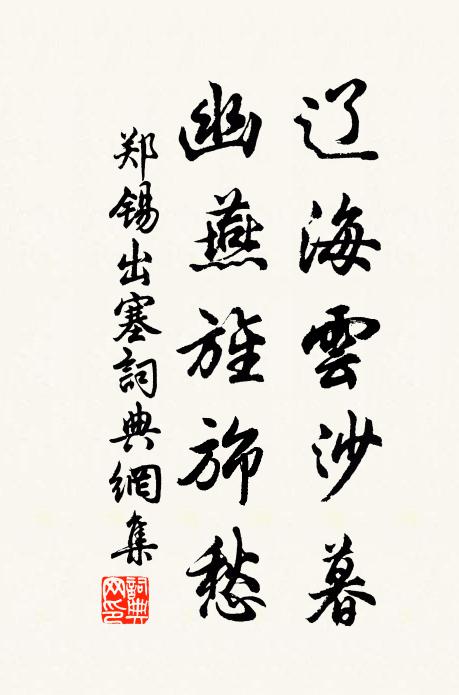 辽海雲沙暮
幽燕旌斾愁
郑锡出塞詞典網集
詞典网印